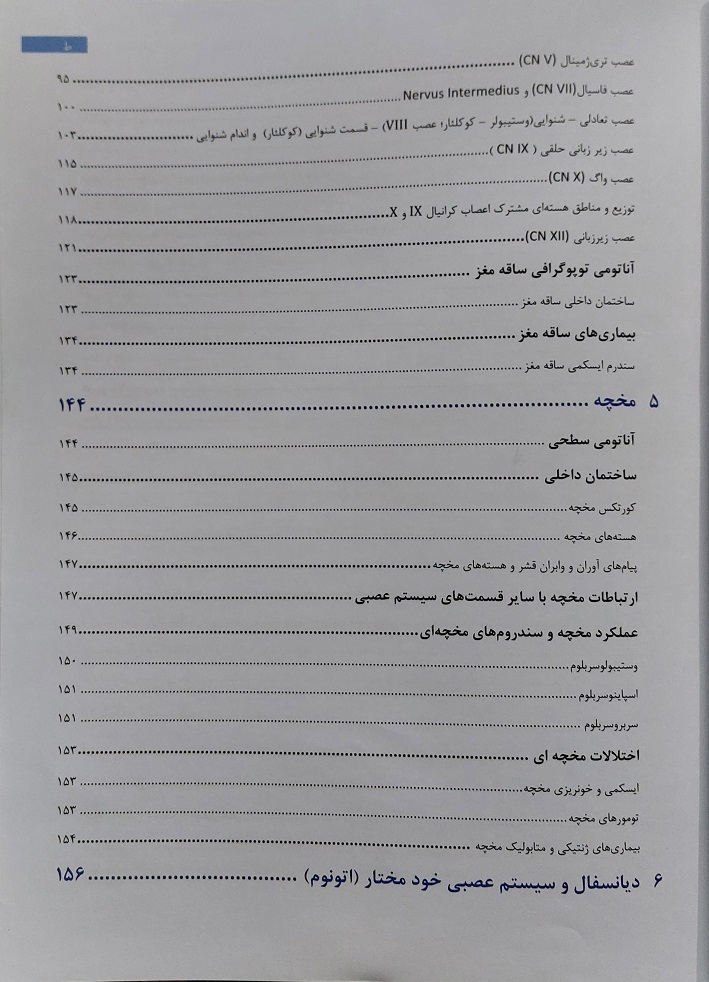 ط
عصب تری‌ژمینال (CN V) ........ ۹۵
عصب فاسیال(CN VII) و Nervus Intermedius ........ ۱۰۰
عصب تعادلی – شنوایی(وستیبولر – کوکلئار؛ عصب VIII) – قسمت شنوایی (کوکلئار) و اندام شنوایی ........ ۱۰۳
عصب زیر زبانی حلقی ( CN IX ) ........ ۱۱۵
عصب واگ (CN X) ........ ۱۱۷
توزیع و مناطق هسته‌ای مشترک اعصاب کرانیال IX و X ........ ۱۱۸
عصب زیرزبانی (CN XII) ........ ۱۲۱
آناتومی توپوگرافی ساقه مغز ........ ۱۲۳
ساختمان داخلی ساقه مغز ........ ۱۲۳
بیماری‌های ساقه مغز ........ ۱۳۴
سندرم ایسکمی ساقه مغز ........ ۱۳۴
۵ مخچه ........ ۱۴۴
آناتومی سطحی ........ ۱۴۴
ساختمان داخلی ........ ۱۴۵
کورتکس مخچه ........ ۱۴۵
هسته‌های مخچه ........ ۱۴۶
پیام‌های آوران و وابران قشر و هسته‌های مخچه ........ ۱۴۷
ارتباطات مخچه با سایر قسمت‌های سیستم عصبی ........ ۱۴۷
عملکرد مخچه و سندروم‌های مخچه‌ای ........ ۱۴۹
وستیبولوسربلوم ........ ۱۵۰
اسپاینوسربلوم ........ ۱۵۱
سربروسربلوم ........ ۱۵۱
اختلالات مخچه ای ........ ۱۵۳
ایسکمی و خونریزی مخچه ........ ۱۵۳
تومورهای مخچه ........ ۱۵۳
بیماری‌های ژنتیکی و متابولیک مخچه ........ ۱۵۴
۶ دیانسفال و سیستم عصبی خود مختار (اتونوم) ........ ۱۵۶